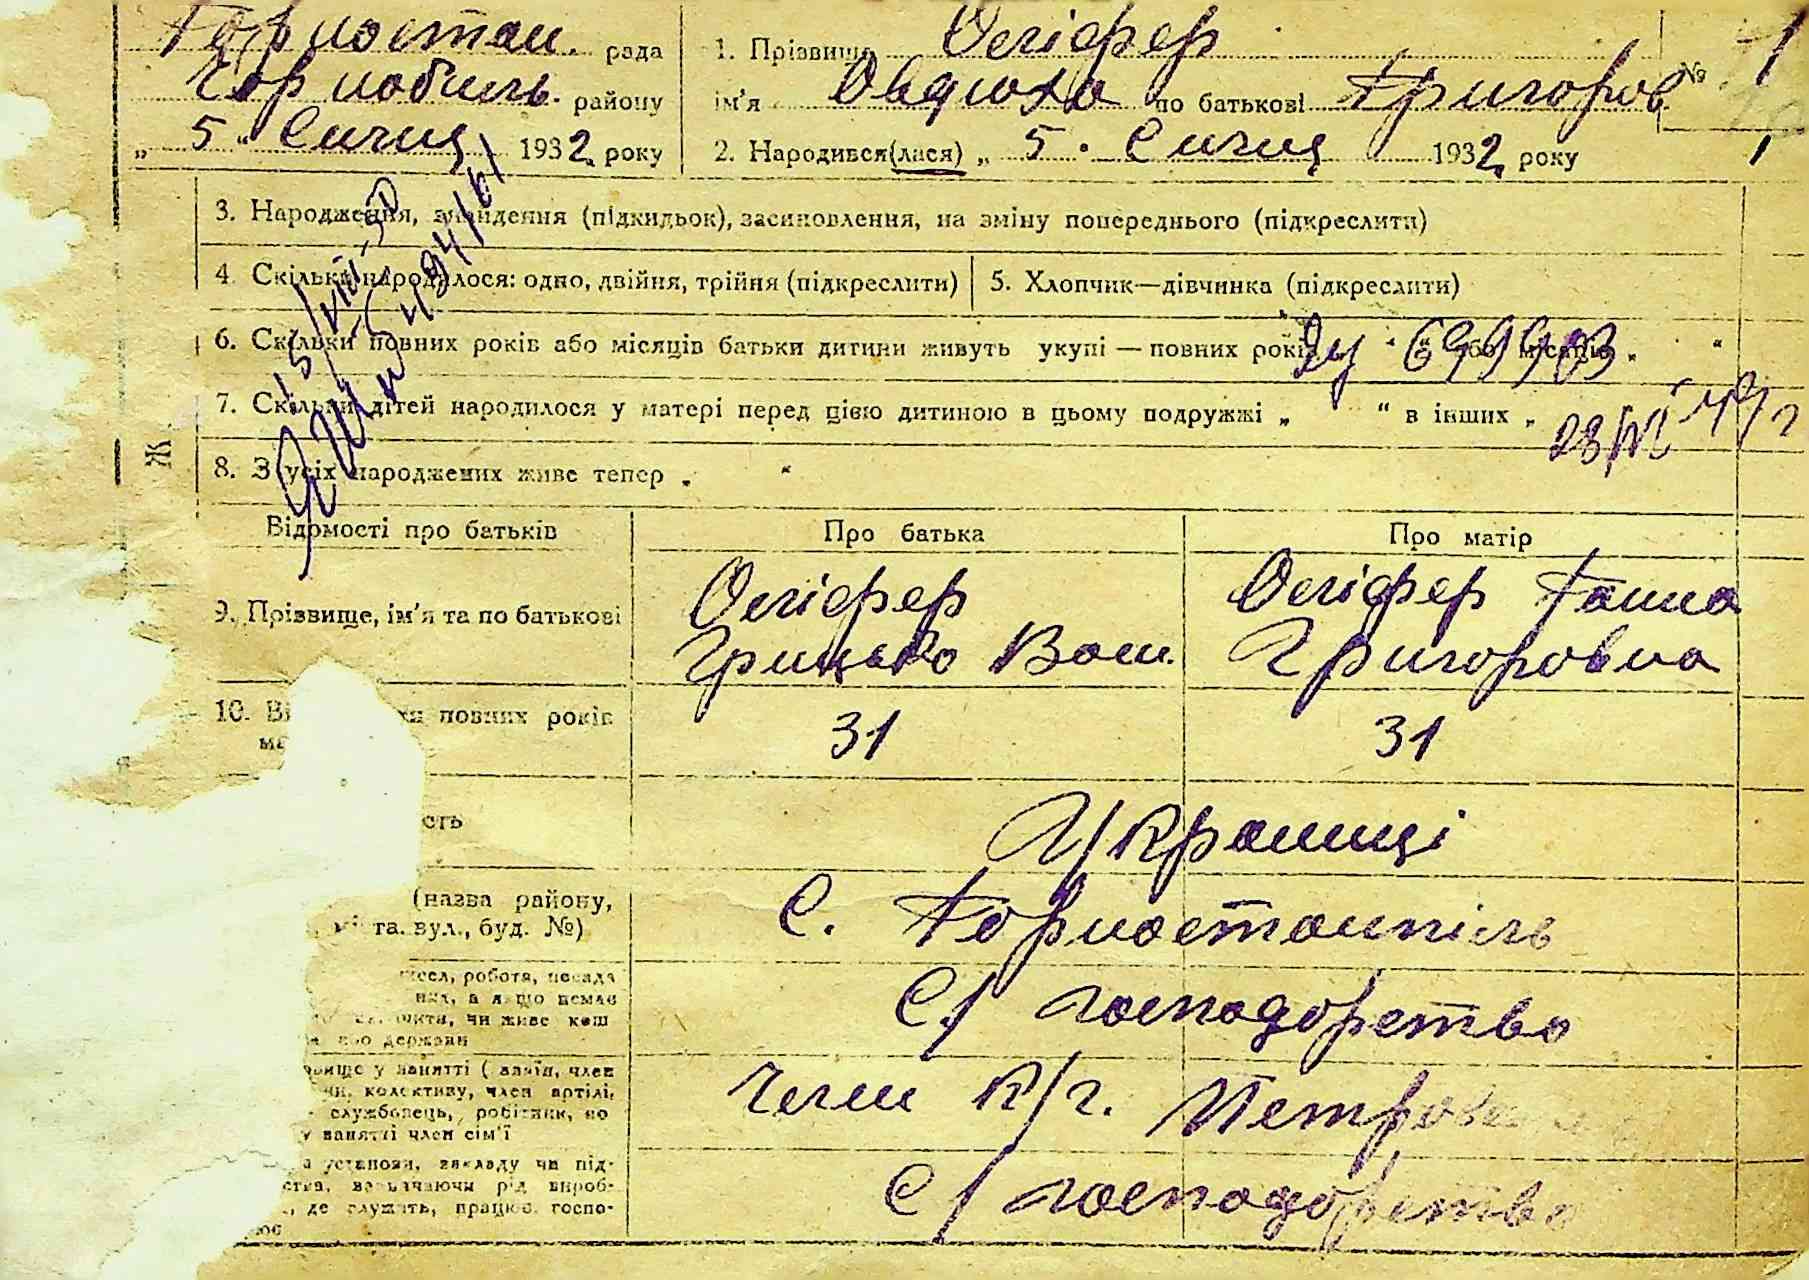 Горностай. рада
Чорнобиль. району
„ 5 " Січня 1932 року
1. Прізвище Олісфер
№ 1
ім'я Овдюха по батькові Григоров
2. Народився(лася) „ 5. Січня 1932 року
3. Народження, знайдення (підкидьок), засиновлення, на зміну попереднього (підкреслити)
4 Скільки народилося: одно, двійня, трійня (підкреслити)
5. Хлопчик—дівчинка (підкреслити)
6. Скільки повних років або місяців батьки дитини живуть укупі — повних років
7. Скільки дітей народилося у матері перед цією дитиною в цьому подружжі „ " в інших „
8. З усіх народжених живе тепер „ "
Ж
Відомості про батьків Про батька Про матір
9. Прізвище, ім'я та по батькові
Олісфер
Грицько Вас.
Олісфер Ганна
Григоровна
10. повних років
31 31
сть
Українці
(назва району,
та. вул., буд. №)
С. Горностайпіль
робота, посада
а якщо немає
чи живе кош
або держави
С/ господарство
у занятті ( член
колективу, член артілі,
службовець, робітник, по
у занятті член сім'ї
Член К/г. Петровс
установи, закладу чи під-
ства, зазначаючи рід вироб-
де служить, працює госпо-
С/ господарство